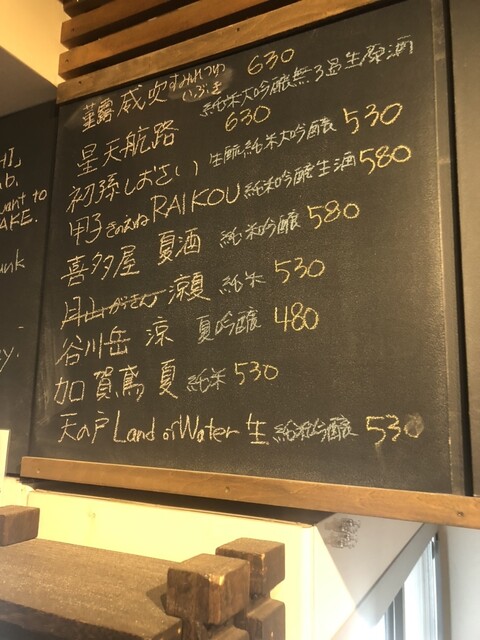 菫露威吹 すみれつゆ いぶき 630
純米大吟醸無ろ過生原酒
星天航路 630
初孫しおさい 生酛純米大吟醸 530
甲子きのえね RAIKOU 純米吟醸生酒 580
喜多屋 夏酒 純米吟醸 580
月山がっさん 涼夏 純米 530
谷川岳 涼 夏吟醸 480
加賀鳶 夏 純米 530
天の戸 Land of Water 生 純米吟醸 530
HI,
ub.
want to
AKE.
unk
ey.